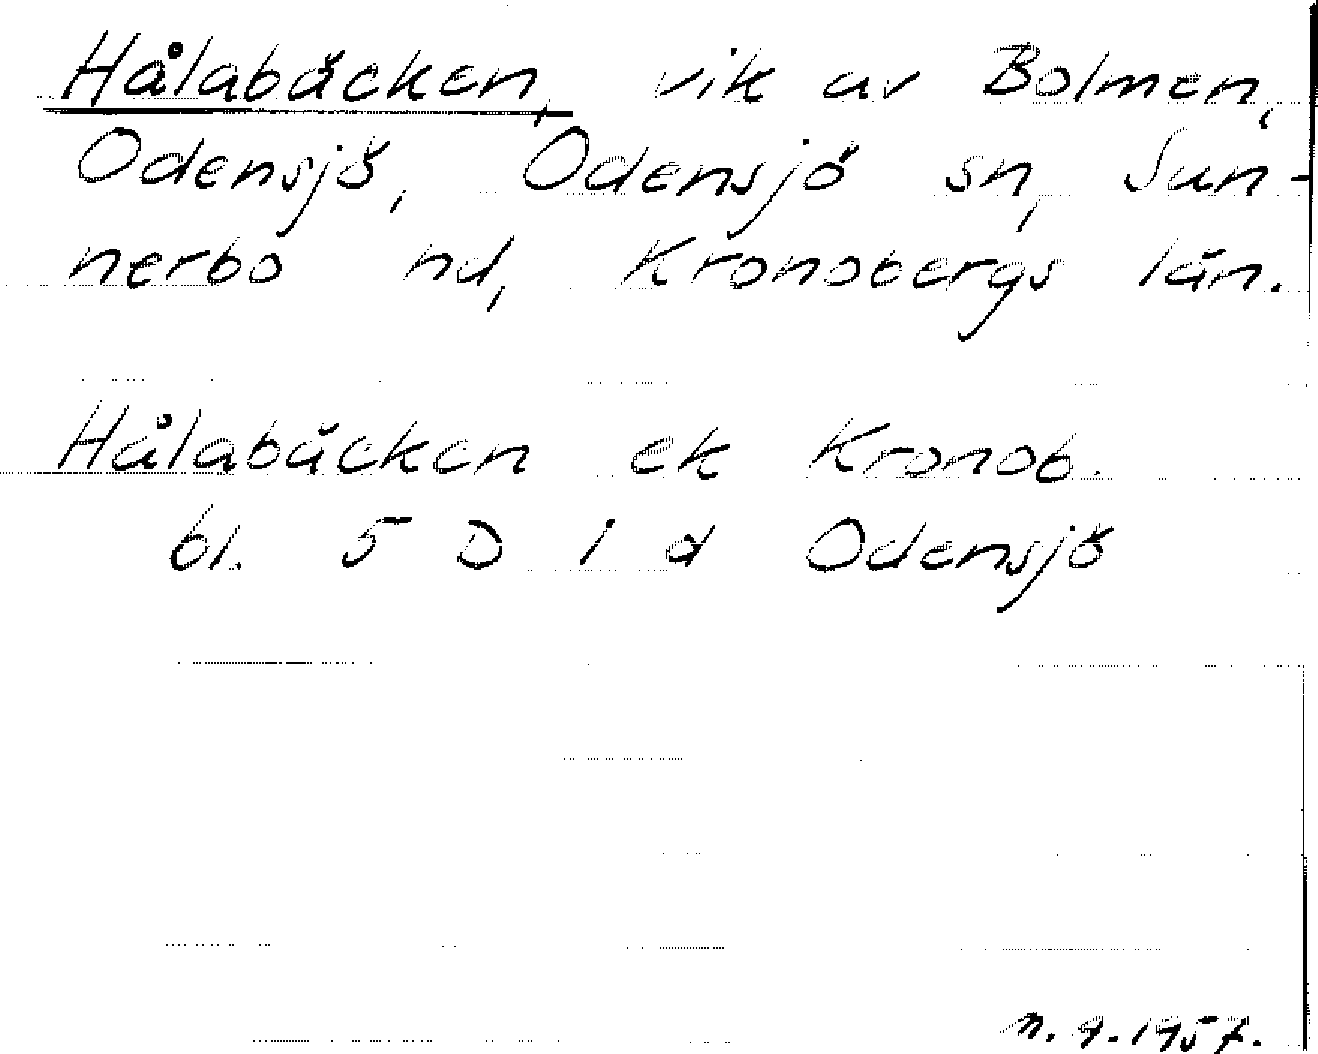 Hålabäcken, vik av Bolmen,
Odensjö, Odensjö sn, Sun-
nerbo hd, Kronobergs län.
Hålabäcken ek Kronob.
bl. 5 D 1 d Odensjö